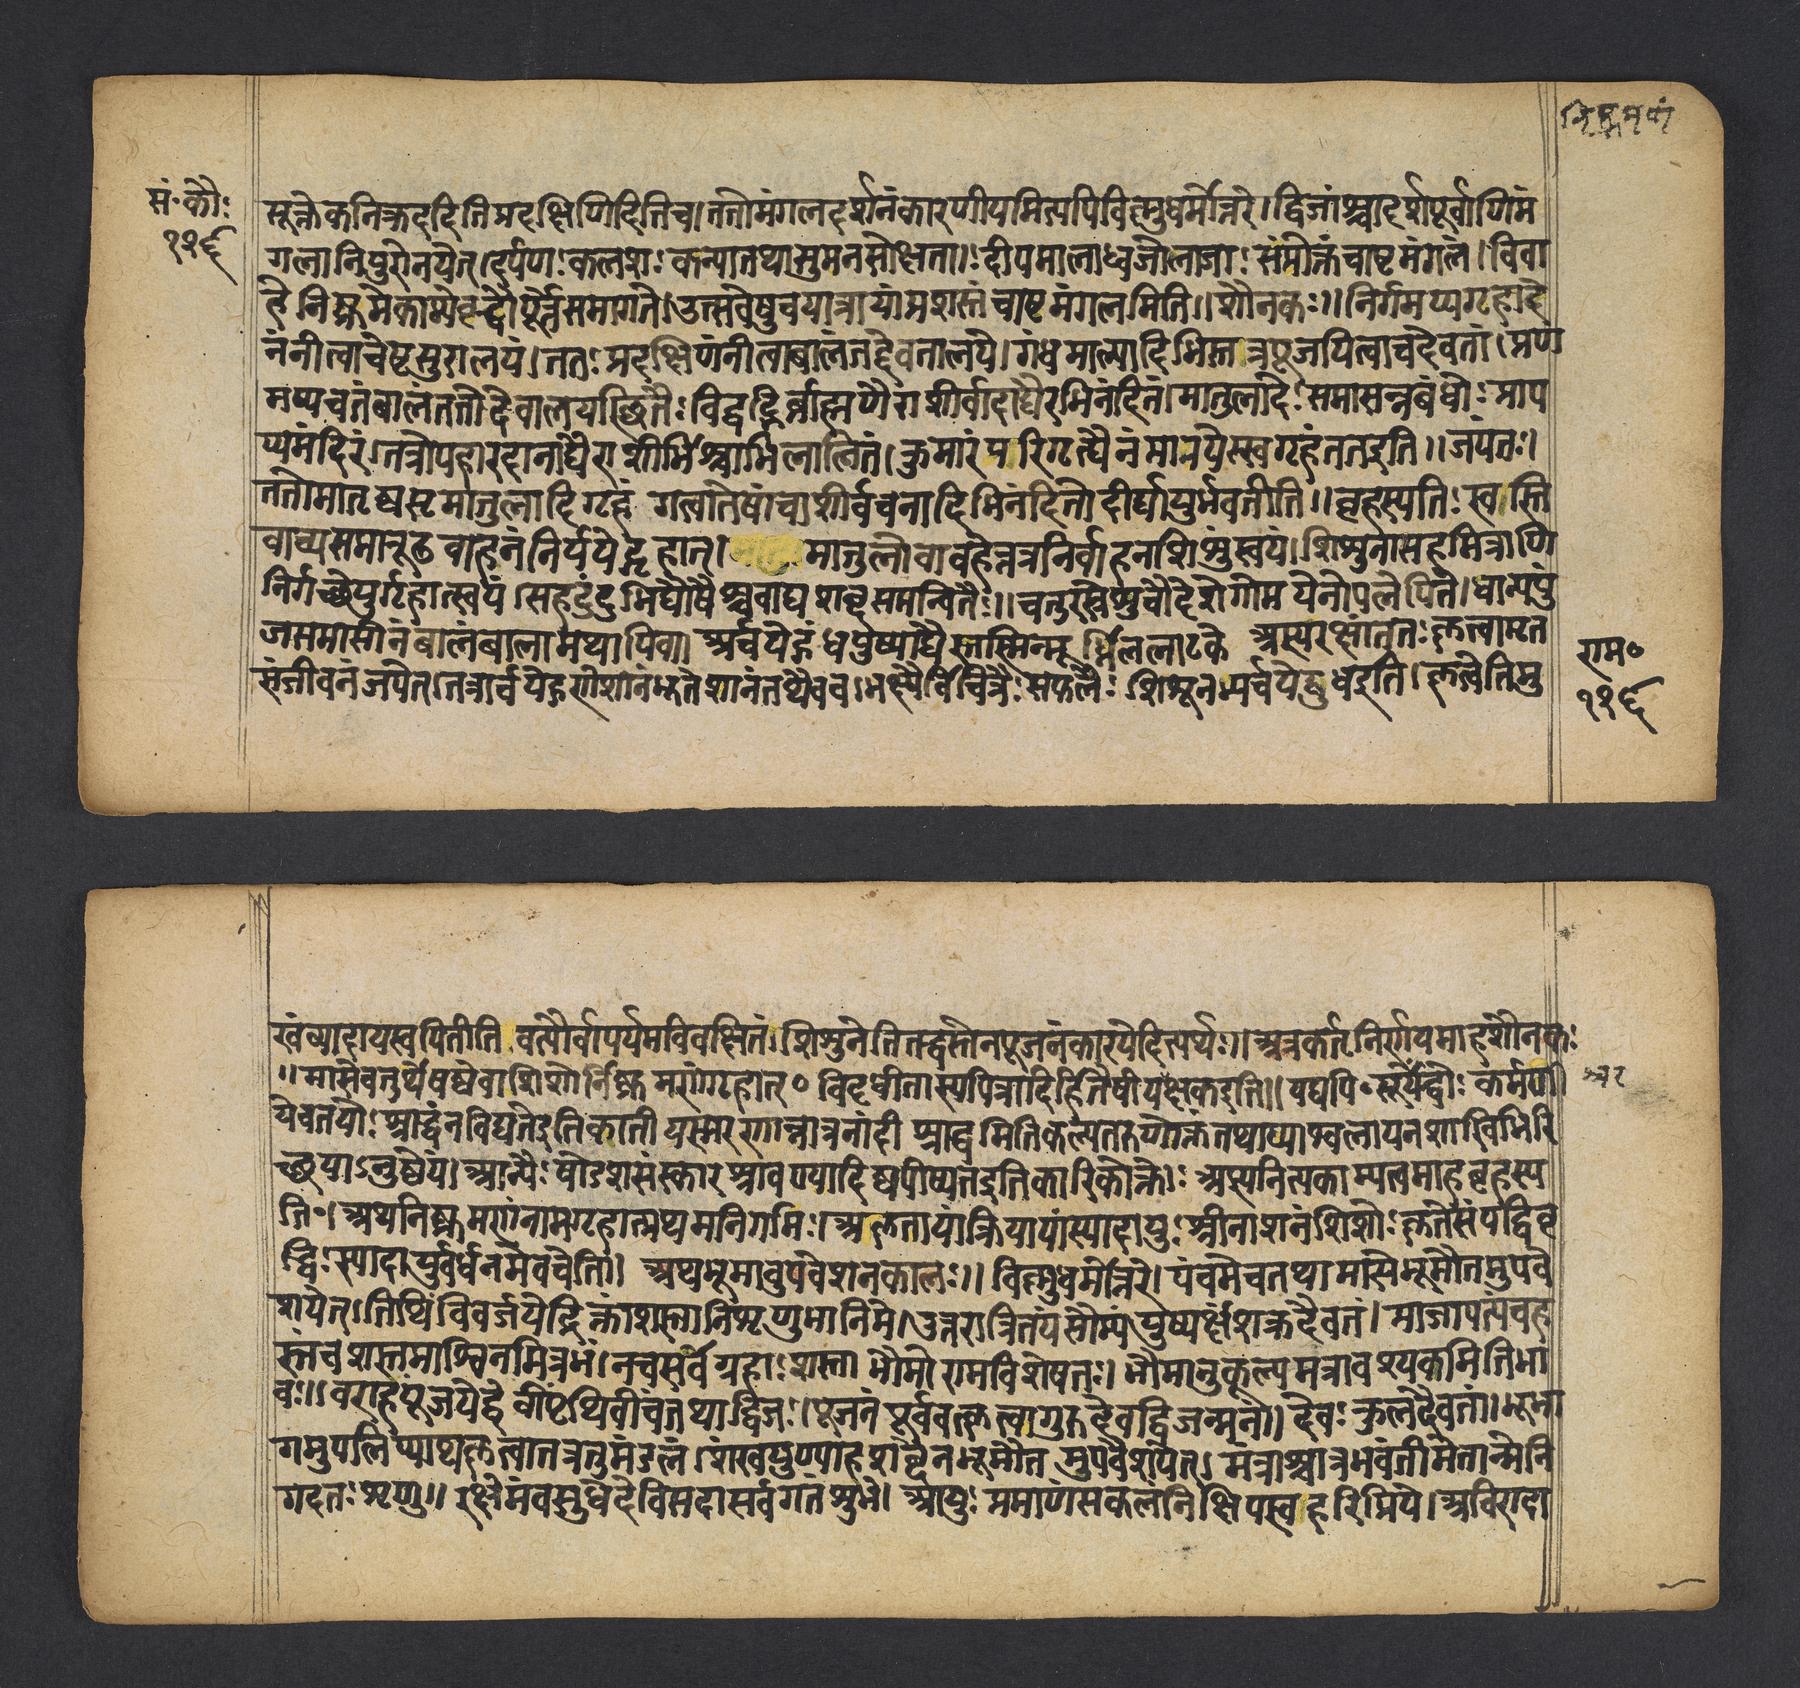 निष्क्रमणं
सं॰कौः
११६
सूक्तेकनिक्रददितिप्रदक्षिणिदितिच।ततोमंगलदर्शनंकारणीयमित्यपिविष्णुधर्मोत्तरे।द्विजांश्चादर्शपूर्वाणिमं
गलानिपुरोनयेत्।दर्पणःकलशःकन्यातथासुमनसोक्षताः।दीपमालाध्वजोलाजाःसंप्रोक्तंचाष्टमंगलं।विवा
हेनिष्क्रमेकाम्येवृद्धौपूर्तेसमागते।उत्सवेषुचयात्रायांप्रशस्तंचाष्टमंगलमिति॥शौनकः॥निर्गमय्यगृहादे
नंनीत्वाचेष्टसुरालयं।ततःप्रदक्षिणंनीत्वाबालंतद्देवतालये।गंधमाल्यादिभिस्तात्रपूजयित्वाचदेवतां।प्रण
मय्यचतंबालंततोदेवालयस्थितैःविद्वद्भिर्ब्राह्मणैराशीर्वादाद्यैरभिनंदितं।मातुलादेःसमासन्नबंधोःप्राप
य्यमंदिरं।तत्रोपहारदानाद्यैराशीर्भिश्चाभिलालितं।कुमारंपरिगृह्यैनंमानयेत्स्वगृहंततइति॥जयंतः।
ततोमातृष्वसृमातुलादिगृहं गत्वातेषांचाशीर्वचनादिभिनंदितोदीर्घायुर्भवतीति॥बृहस्पतिःस्वस्ति
वाच्यसमारूढवाहनंनिर्ययेद्गृहात्।मातुलोवावहेत्तत्रनिर्वाहनशिशुंस्वयं।शिशुनासहमित्राणि
निर्गच्छेयुर्गृहात्स्वयं।सहदुंदुभिघोषैश्चवाद्यशब्दसमन्वितैः॥चतुरस्रेशुचौदेशेगोमयेनोपलेपिते।धान्यपुं
जसमासीनंबालंबालामथापिवा।अर्चयेद्गंधपुष्पाद्यैस्तास्मिन्मूर्ध्निललाटके अस्यरक्षांततःकृत्वामृत
संजीवनंजपेत्।तत्रार्चयेद्गणेशानंभूतेशानंतथैवच।भक्ष्यैर्विचित्रैःसफलैःशिशूनभ्यर्चयेद्बुधइति।कृत्वेतिमु
राम॰
११६
खंव्यादायस्वपितीति वत्पौर्वापर्यमविवक्षितं।शिशुनेतितद्धस्तेनपूजनंकारयेदित्यर्थः॥अत्रकर्तृनिर्णयमाहशौनकः
॥मासेचतुर्थेषष्ठेवाशिशोर्निष्क्रमणंगृहात्॰विदधीतास्यपित्रादिर्हितैषीयक्षकइति॥यद्यपि॰सूर्येंद्वोःकर्मणी
येचतयोःश्राद्धंनविद्यतेइतिकातीयस्मरणान्नात्रनांदीश्राद्धमितिकल्पतरुणोक्तंतथाप्याश्वलायनशाखिभिरि
च्छयाऽनुष्ठेयं।आन्यैःषोडशसंस्कारश्रावण्यादिष्वपीष्यतइतिकारिकोक्तेः।अस्यनित्यकाम्यत्वमाहबृहस्प
तिः।अथनिष्क्रमणंनामगृहात्प्रथमनिर्गमिः।अकृतायांक्रियायांस्यादायुःश्रीनाशनंशिशोःकृतेसंपद्विवृ
द्धिःस्यादायुर्वर्धनमेवचेति॥ अथभूमावुपवेशनकालः॥विष्णुधर्मोत्तरे।पंचमेचतथामासिभूमौतमुपवे
शयेत्।तिथिंविवर्जयेद्रिक्तांशस्तानिशृणुभानिमे।उत्तरात्रितयंसौम्यंपुष्यर्क्षंशक्रदैवतं।प्राजापत्यंचह
स्तंचशस्तमाश्विनमित्रभं।नचसर्वेग्रहाःशस्ताभौमोरामविशेषतः।भौमानुकूल्यमत्रावश्यकमितिभा
वः॥वराहंपूजयेद्देवींपृथिवींचतथाद्विजः।पूजनंपूर्ववत्कृत्वागुरुदेवद्विजन्मनां।देवःकुलदैवतां।भूभा
गमुपलिप्याथकृत्वातत्रतुमंडलं।शंखपुण्याहशब्देनभूमौत मुपवेशयेत्।मंत्राश्चात्रभवंतीमेतान्मेनि
गदतःशृणु॥रक्षैनंवसुधेदेविसदासर्वगतंशुभे।आयुःप्रमाणंसकलंनिक्षिपस्वहरिप्रिये।अचिरादा